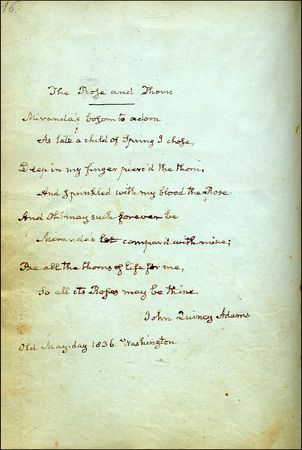 16.
The Rose and Thorn
Miranda's bosom to adorn
As late a child of Spring I chose,
Deep in my finger pierc'd the thorn,
And sprinkled with my blood the Rose
And Oh! may such forever be
Meranda's lot compard with mine;
Be all the thorns of life for me,
So all its Roses may be thine.
John Quincy Adams.
Old May-day 1836. Washington